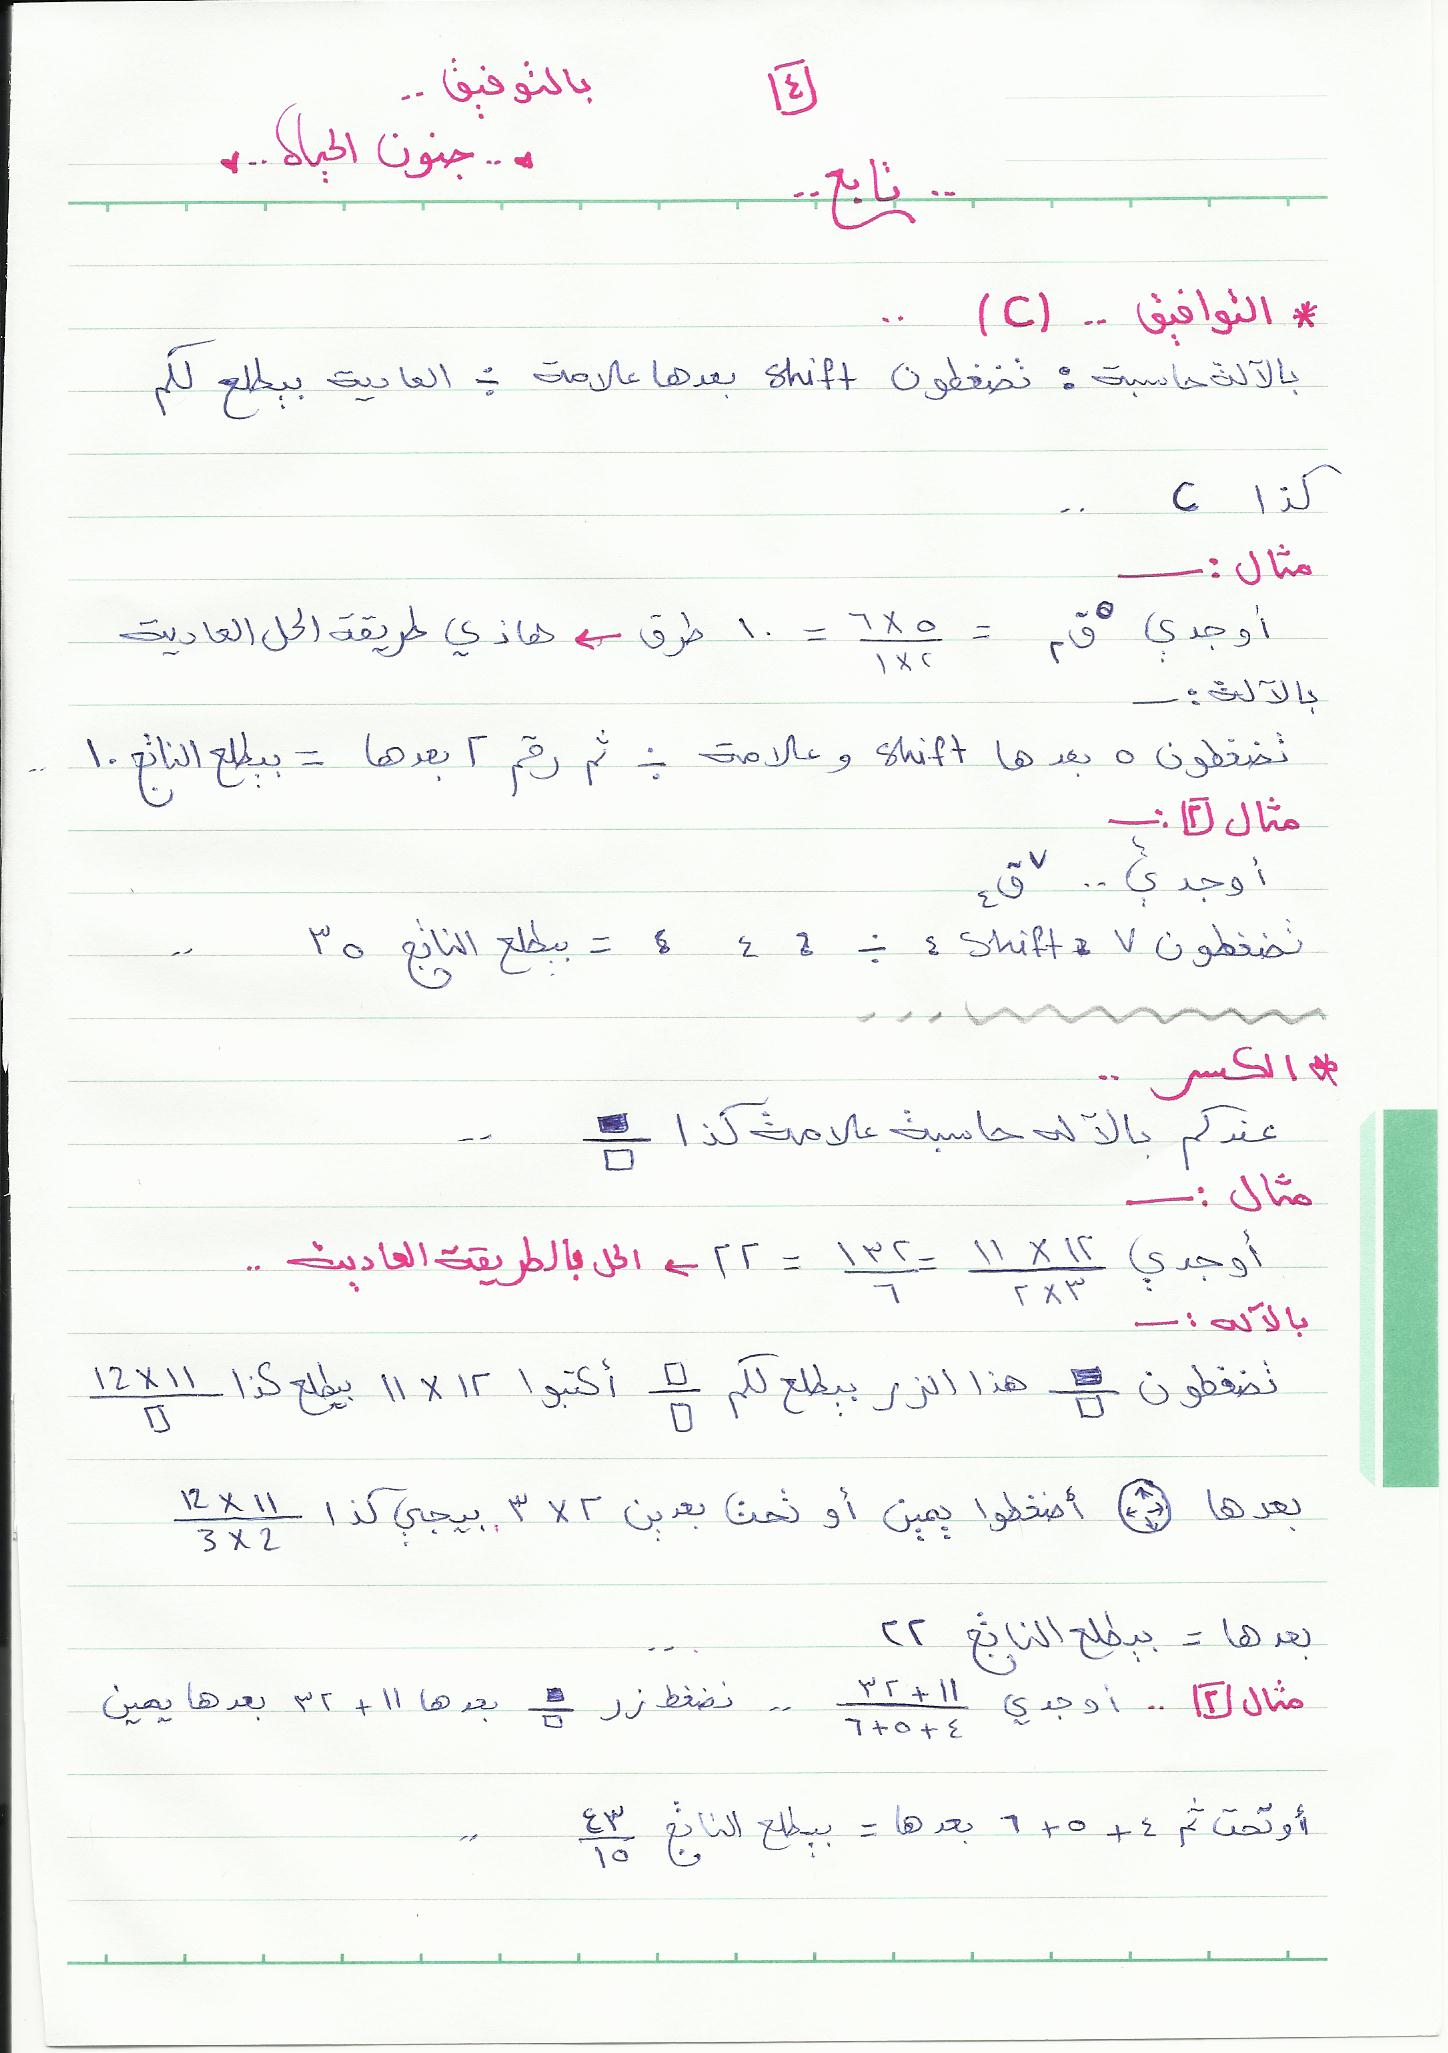 ٤
بالتوفيق ..
.. جنون الحياة ..
.. تابع ..
* التوافيق .. (C) ..
بالآلة حاسبة : تضغطون shift بعدها علامة ÷ العادية بيطلع لكم
كذا C ..
مثال :
أوجدي ٥ق٢ = ٦×٥ / ١×٢ = ١٠ طرق ← هاذي طريقة الحل العادية
بالآلة :
تضغطون ٥ بعدها shift وعلامة ÷ ثم رقم ٢ بعدها = بيطلع الناتج ١٠ ..
مثال ٢ :
أوجدي .. ٧ق٤
تضغطون ٧ ؛ shift ؛ ÷ ؛ ٤ ؛ = بيطلع الناتج ٣٥ ..
* الكسر ..
عندكم بالآله حاسبة علامة كذا ■/□ ..
مثال :
أوجدي ١١×١٢ / ٢×٣ = ١٣٢ / ٦ = ٢٢ ← الحل بالطريقة العادية ..
بالآله :
تضغطون ■/□ هذا الزر بيطلع لكم □/□ أكتبوا ١١×١٢ بيطلع كذا 12×11 / □
بعدها أضغطوا يمين أو تحت بعدين ٣×٢ بيجي كذا 12×11 / 3×2
بعدها = بيطلع الناتج ٢٢ ..
مثال ٢ .. أوجدي ٣٢+١١ / ٦+٥+٤ .. نضغط زر ■/□ بعدها ٣٢+١١ بعدها يمين
أو تحت ثم ٦+٥+٤ بعدها = بيطلع الناتج ٤٣ / ١٥ ..